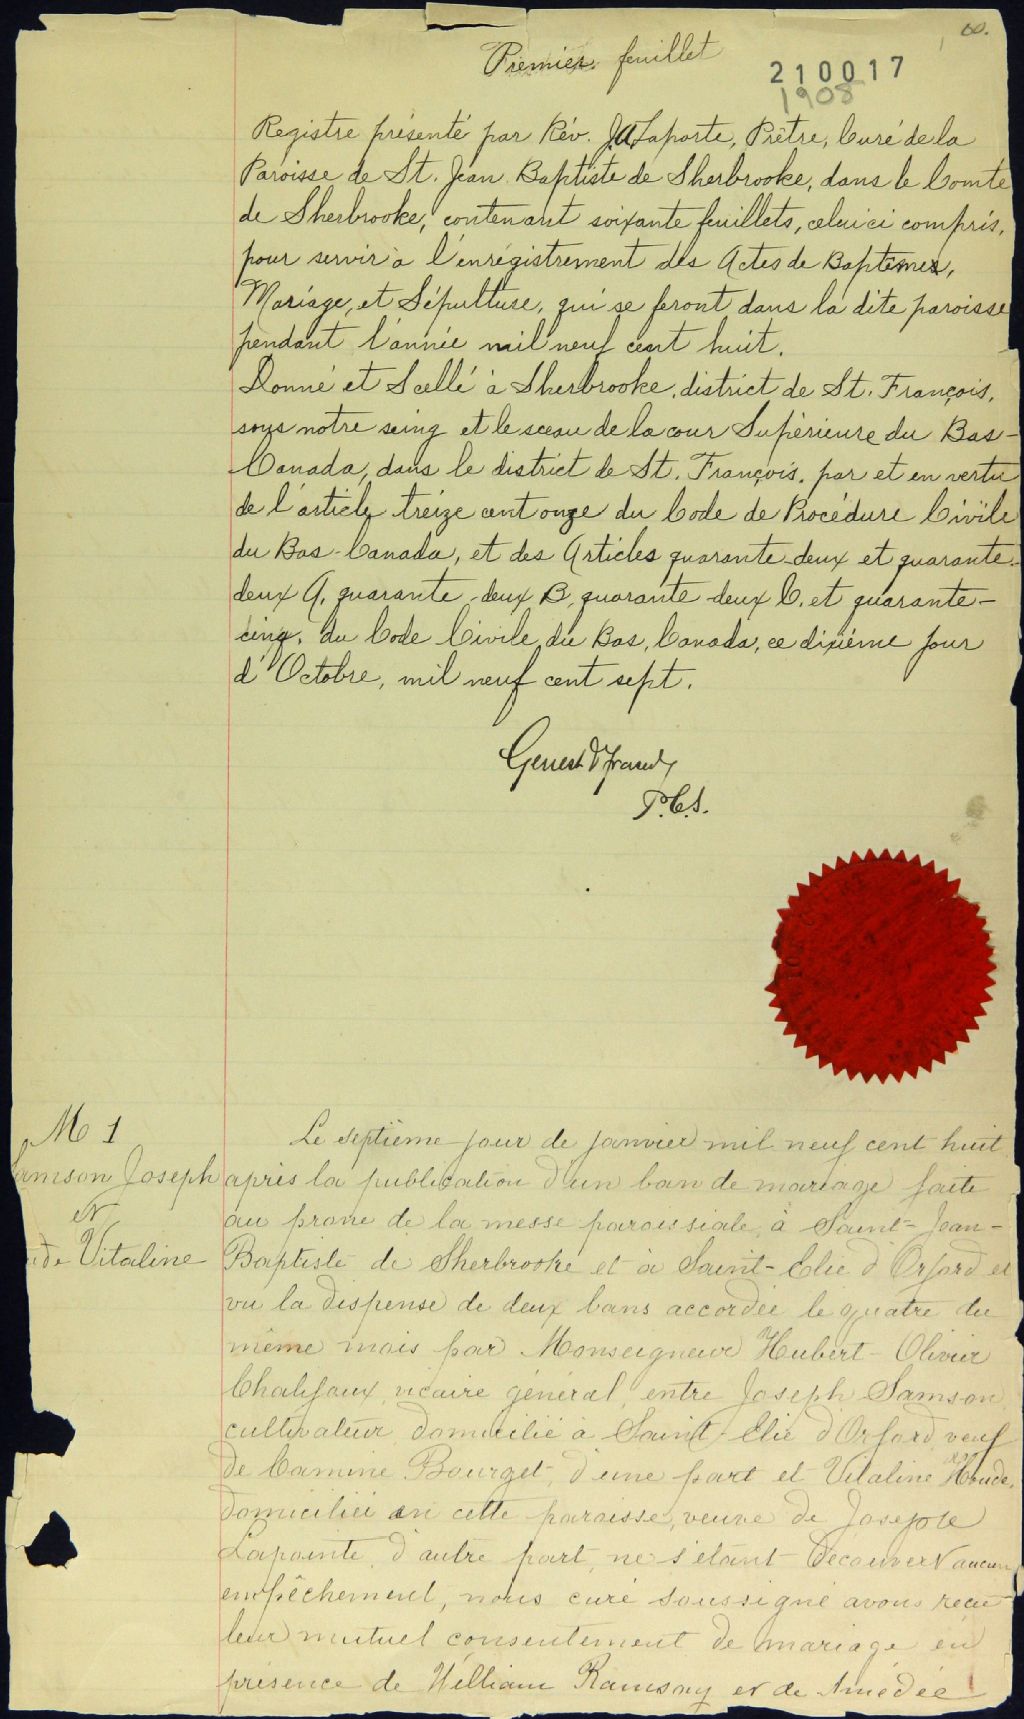 60.
Premier feuillet
210017
1908
Registre présenté par Rév. J.A. Laporte, Prêtre, Curé de la
Paroisse de St. Jean Baptiste de Sherbrooke, dans le Comte
de Sherbrooke, contenant soixante feuillets, celui ci compris,
pour servir à l'enrégistrement des Actes de Baptêmes,
Mariage, et Sépulture, qui se feront dans la dite paroisse
pendant l'année mil neuf cent huit.
Donné et Scellé à Sherbrooke, district de St. François,
sous notre seing et le sceau de la cour Supérieure du Bas-
Canada, dans le district de St. François, par et en vertu
de l'article treize cent onze du Code de Procédure Civile
du Bas-Canada, et des Articles quarante-deux et quarante-
deux A, quarante-deux B, quarante-deux C, et quarante-
cinq, du Code Civile du Bas, Canada, ce dixième jour
d'Octobre, mil neuf cent sept.
P.C.S.
M 1
Le septième jour de janvier mil neuf cent huit
amson Joseph
après la publication d'un ban de mariage faite
et
au prone de la messe paroissiale, à Saint-Jean-
ude Vitaline
Baptiste de Sherbrooke et à Saint-Elie d'Orford et
vu la dispense de deux bans accordée le quatre du
même mois par Monseigneur Hubert-Olivier
Chalifoux, vicaire général, entre Joseph Samson
cultivateur domicilié à Saint-Elie d'Orford, veuf
de Bourget, d'une part et Vitaline Houde,
domiciliée en cette paroisse, veuve de Joseph
Lapointe, d'autre part, ne s'étant découvert aucun
empêchement, nous curé soussigné avons reçu
leur mutuel consentement de mariage en
présence de William Ramsay et de Amédée